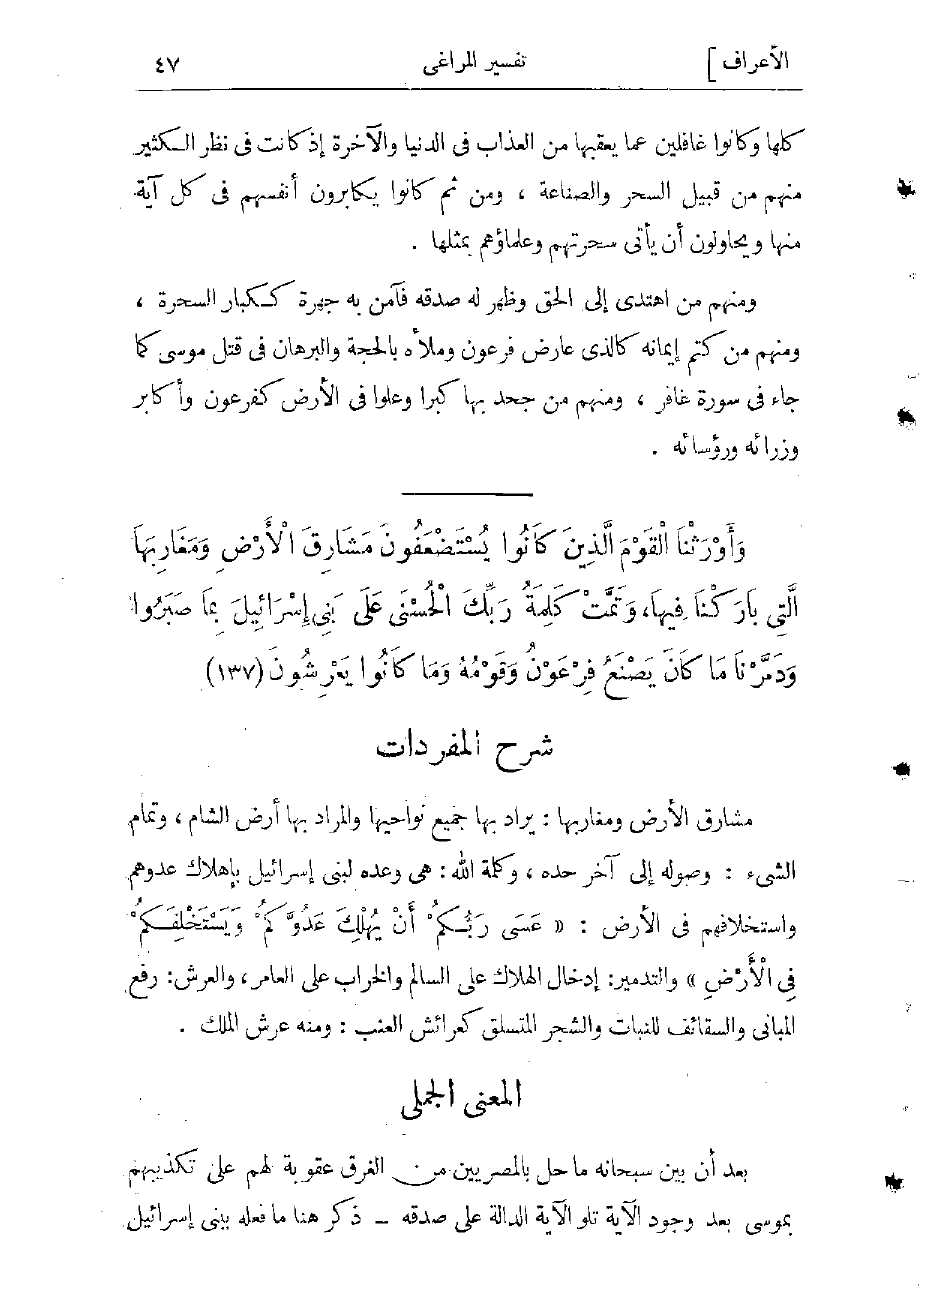 الأعراف ] تفسير المراغى ٤٧
كلها وكانوا غافلين عما يعقبها من العذاب فى الدنيا والآخرة إذ كانت فى نظر الكثير
منهم من قبيل السحر والصناعة ، ومن ثم كانوا يكابرون أنفسهم فى كل آية
منها ويحاولون أن يأتى سحرتهم وعلماؤهم بمثلها .
ومنهم من اهتدى إلى الحق وظهر له صدقه فآمن به جهرة ككبار السحرة ،
ومنهم من كتم إيمانه كالذى عارض فرعون وملأه بالحجة والبرهان فى قتل موسى كما
جاء فى سورة غافر ، ومنهم من جحد بها كبرا وعلوا فى الأرض كفرعون وأكابر
وزرائه ورؤسائه .
وَأَوْرَثْنَا الْقَوْمَ الَّذِينَ كَانُوا يُسْتَضْعَفُونَ مَشَارِقَ الْأَرْضِ وَمَغَارِبَهَا
الَّتِي بَارَكْنَا فِيهَا، وَتَمَّتْ كَلِمَةُ رَبِّكَ الْحُسْنَى عَلَى بَنِي إِسْرَائِيلَ بِمَا صَبَرُوا
وَدَمَّرْنَا مَا كَانَ يَصْنَعُ فِرْعَوْنُ وَقَوْمُهُ وَمَا كَانُوا يَعْرِشُونَ (١٣٧)
شرح المفردات
مشارق الأرض ومغاربها : يراد بها جميع نواحيها والمراد بها أرض الشام ، وتمام
الشىء : وصوله إلى آخر حده ، وكلمة الله : هى وعده لبنى إسرائيل بإهلاك عدوهم
واستخلافهم فى الأرض : « عَسَى رَبُّكُمْ أَنْ يُهْلِكَ عَدُوَّكُمْ وَيَسْتَخْلِفَكُمْ
فِى الْأَرْضِ » والتدمير: إدخال الهلاك على السالم والخراب على العامر، والعرش: رفع
المبانى والسقائف للنبات والشجر المتسلق كعرائش العنب : ومنه عرش الملك .
المعنى الجملى
بعد أن بين سبحانه ما حل بالمصريين من الغرق عقوبة لهم على تكذيبهم
بموسى بعد وجود الآية تلو الآية الدالة على صدقه – ذكر هنا ما فعله ببنى إسرائيل